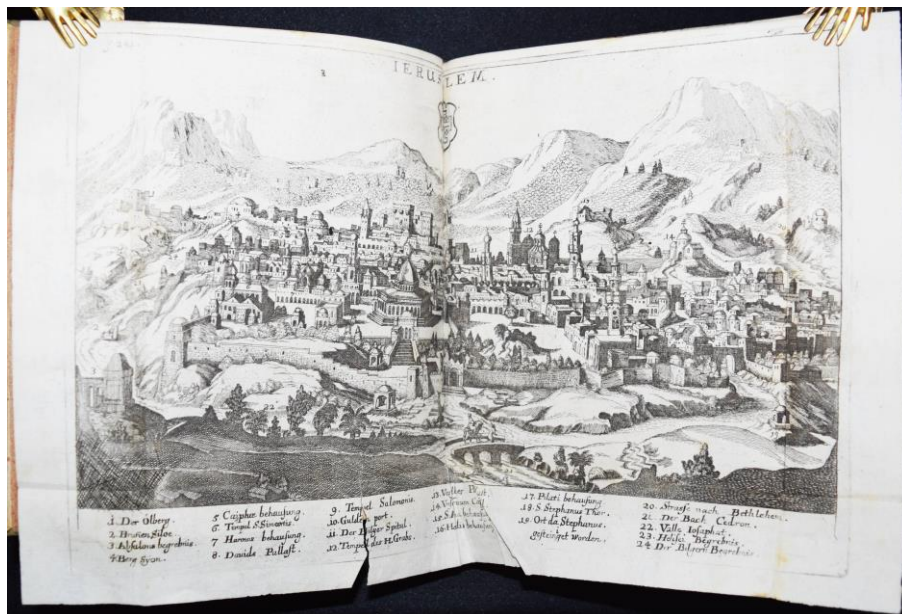 IERUSLEM.
1. Der Ölberg.
2. Brunen Siloe
3. Absalons begrebnis.
4. Berg Syon.
5 Caiphas behausung.
6 Tempel S. Simeonis.
7 Hannas behausung.
8. Davids Pallast.
9. Tempel Salomonis.
10. Gulden port.
11. Der Bilger Spital.
12. Tempel des H. Grabs.
17. Pilati behausung.
18. S Stephanus Thor.
19. Ort da Stephanus.
gesteiniget worden.
20. Strasse nach Bethlehem.
21. Der Bach Cedron.
22. Valle Iosaphat.
23. Begrebnis.
24 Der Bilgern Begrebnis